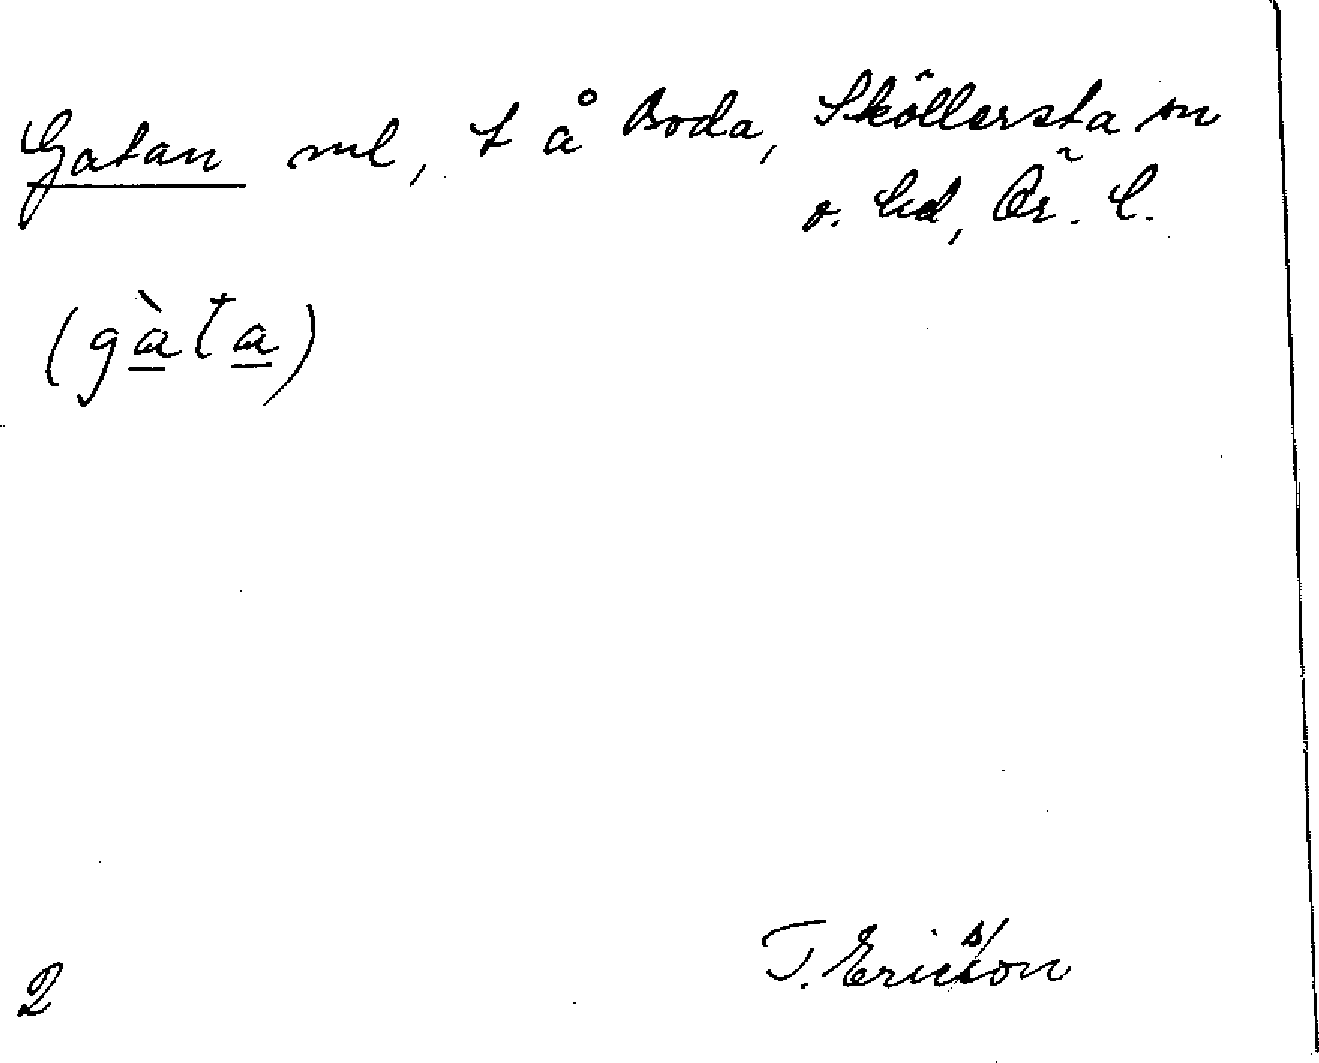 Gatan ml, t å Boda, Sköllersta sn
o. hd, Ör. l.
(gàta)
T. Ericsson
2